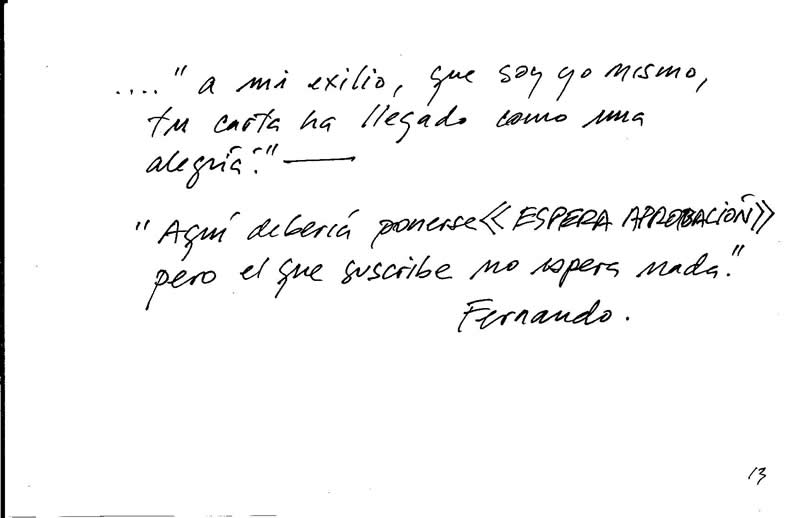 ...." a mi exilio, que soy yo mismo,
tu carta ha llegado como una
alegría." ——
"Aquí debería ponerse << ESPERA APROBACIÓN >>
pero el que suscribe no espera nada."
Fernando.
13